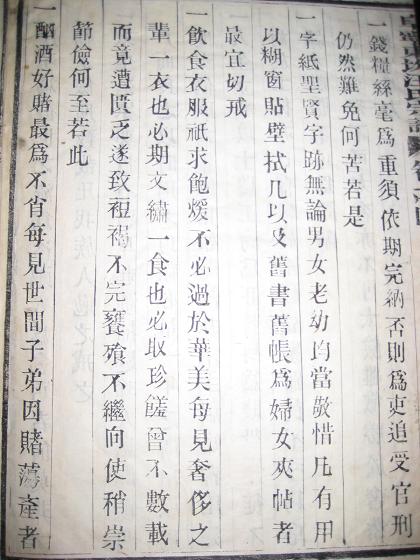 一錢糧絲毫爲重須依期完納否則爲吏追受官刑
仍然難免何苦若是
一字紙聖賢字跡無論男女老幼均當敬惜凡有用
以糊窗貼壁拭几以及舊書舊帳爲婦女夾帖者
最宜切戒
一飲食衣服祇求飽煖不必過於華美每見奢侈之
輩一衣也必期文繡一食也必取珍饈曾不數載
而竟遭匱乏遂致裋褐不完饔飧不繼向使稍崇
節儉何至若此
一酗酒好賭最爲不肖每見世間子弟因賭蕩產者